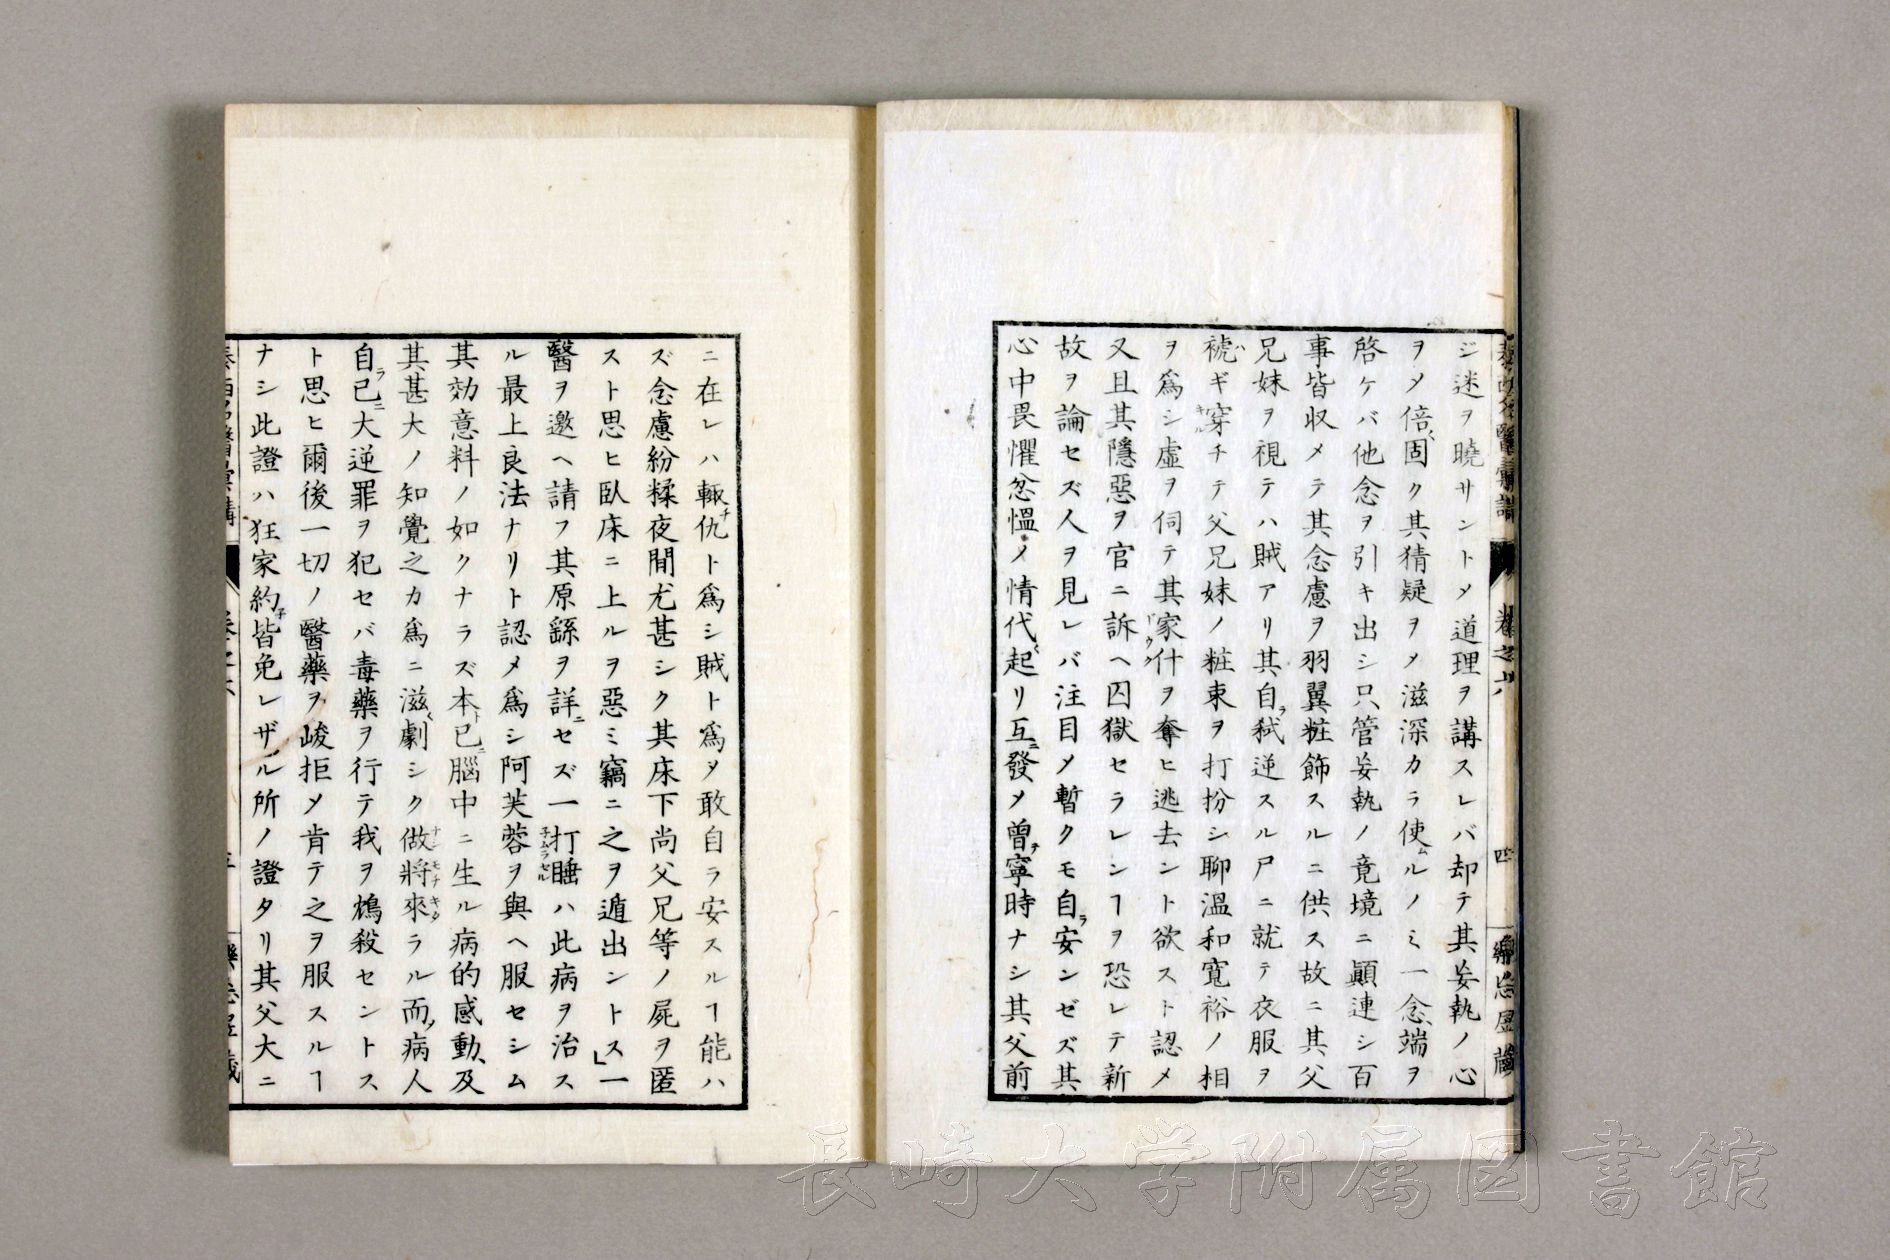 ジ迷ヲ曉サントメ道理ヲ講スレバ却テ其妄執ノ心
ヲメ倍固ク其猜疑ヲメ滋深カラ使ムルノミ一念端ヲ
啓ケバ他念ヲ引キ出シ只管妄執ノ竟境ニ顚連シ百
事皆収メテ其念慮ヲ羽翼粧飾スルニ供ス故ニ其父
兄妹ヲ視テハ賊アリ其自ラ弑逆スル尸ニ就テ衣服ヲ
褫ギ穿チテ父兄妹ノ粧束ヲ打扮シ聊溫和寬裕ノ相
ヲ爲シ虛ヲ伺テ其家什ヲ奪ヒ逃去ント欲スト認メ
又且其隱惡ヲ官ニ訴ヘ囚獄セラレンヿヲ恐レテ新
故ヲ論セズ人ヲ見レバ注目メ暫クモ自ラ安ンゼズ其
心中畏懼忿慍メ情代起リ互ニ發メ曾テ寧時ナシ其父前
ニ在レハ輙チ仇ト爲シ賊ト爲メ敢自ラ安スルヿ能ハ
ズ念慮紛糅夜間尤甚シク其床下尚父兄等ノ屍ヲ匿
スト思ヒ臥床ニ上ルヲ惡ミ竊ニ之ヲ遁出ントス」一
醫ヲ邀ヘ請フ其原繇ヲ詳ニセズ一打睡ハ此病ヲ治ス
ル最上良法ナリト認メ爲シ阿芙蓉ヲ與ヘ服セシム
其効意料ノ如クナラズ本ト已ニ腦中ニ生ル病的感動、及
其甚大ノ知覺之カ爲ニ滋劇シク做將來ラル而ノ病人
自ラ已ニ大逆罪ヲ犯セバ毒藥ヲ行テ我ヲ鴆殺セントス
ト思ヒ爾後一切ノ醫藥ヲ峻拒メ肯テ之ヲ服スルヿ
ナシ此證ハ狂家約チ皆免レザル所ノ證タリ其父大ニ
長崎大学附属図書館